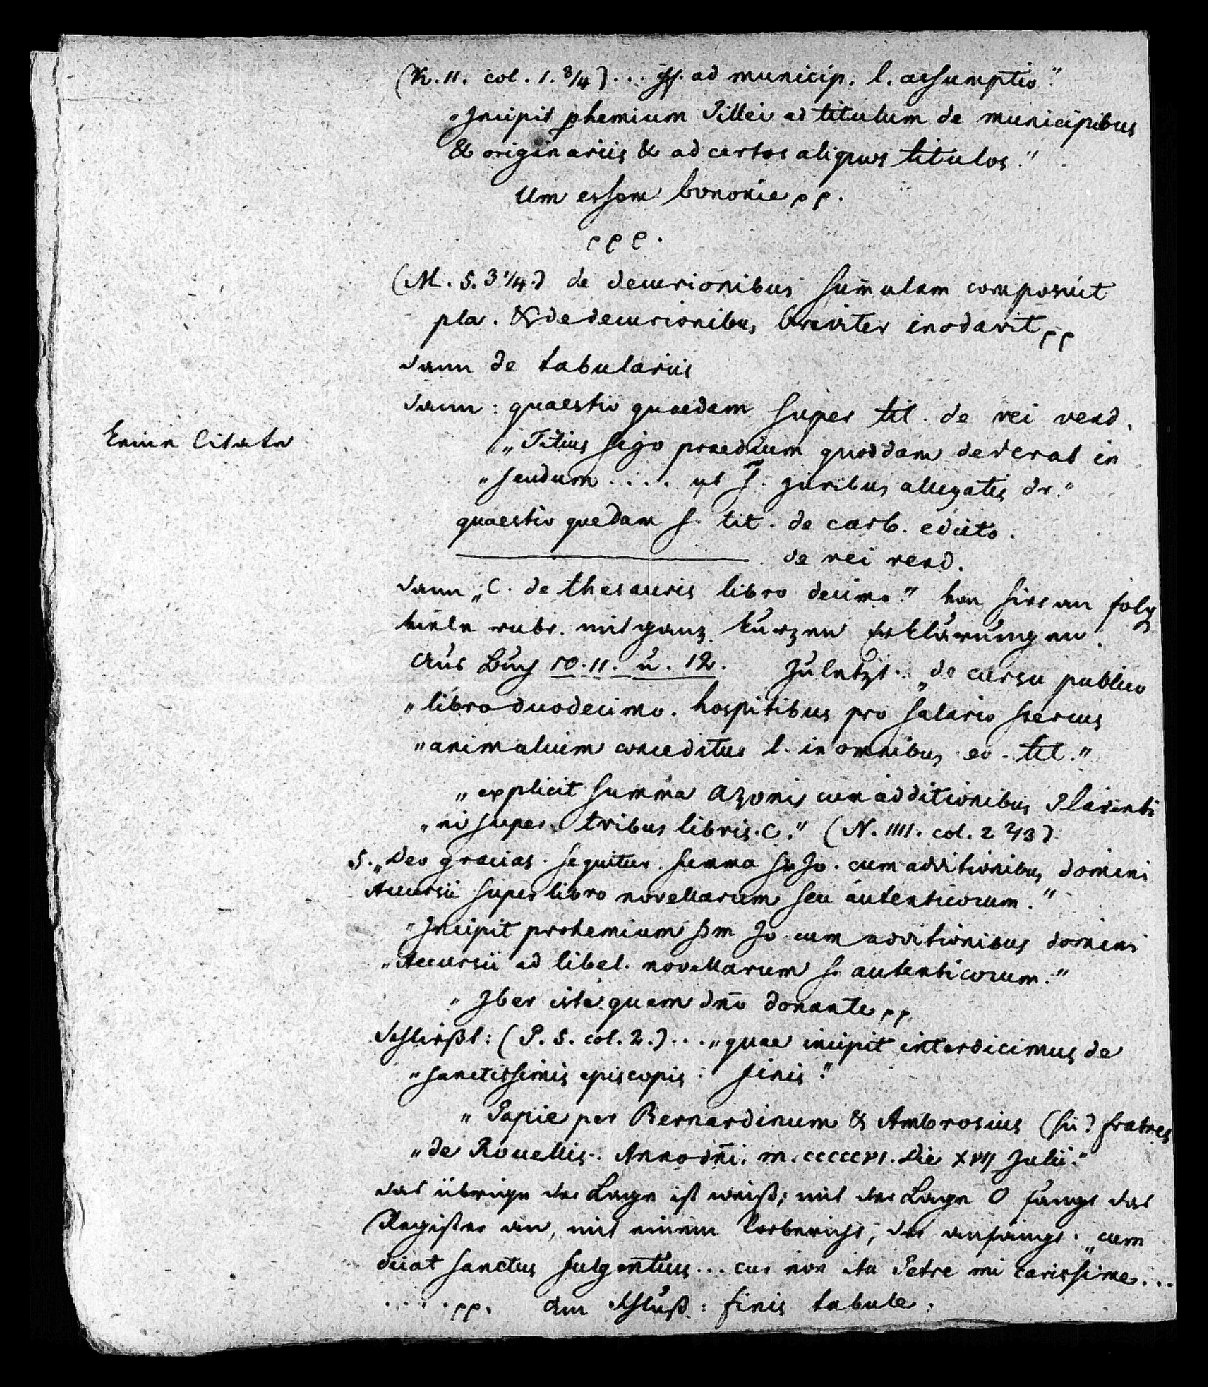 (K. 11. col. 1. 3/4) ... ff. ad municip. l. assumptio"
"Incipit phemium Pillei ad titulum de municipibus
& originariis & ad certos aliquos titulos."
Um essem bononie pp.
ppp.
(M. 5. 3 1/4) de decurionibus summulam composuit
pla. & de decurionibus breviter inodavit pp
dann de tabulariis
dann: quaestio quaedam super tit. de rei vend.
Keine Citate
"Titius sejo praedium quoddam dederat in
"feudum .... juribus allegatis dr."
quaestio quedam s. tit. de carb. edicto.
de rei vend.
dann "C. de thesauris libro decimo" von hier an folg
viele rubr. mit ganz kurzen Erklärungen
aus Buch 10. 11. u. 12. Zuletzt: "de cursu publico
"libro duodecimo. hospitibus pro salario stercus
"animalium conceditur l. in omnibus eo. tit."
"explicit summa azonis cum additionibus Placenti
"ni super tribus libris. C." (N. 1111. col. 2 2/3)
5. "Deo gracias. sequitur summa Jo. cum additionibus domini
Accursii super libro novellarum seu autenticorum."
"Incipit prohemium Jo. cum additionibus domini
"Accursii ad libel. novellarum s. autenticorum."
"Iber iste quem dno donante pp
Schließt: (P. 5. col. 2.) ... "quae incipit interdicimus de
"sanctissimis episcopis: finis."
"Papie per Bernardinum & Ambrosius (sic) fratres
"de Rouellis: Anno dni. m. cccccvi. die xvij Julii."
das übrige der Lage ist weiß; mit der Lage O fängt das
Register an, mit einem Vorbericht, der anfängt: "cum
dicat sanctus fulgentius ... cur non ita Petre mi carissime ...
..... pp. Am Schluß: finis tabule.